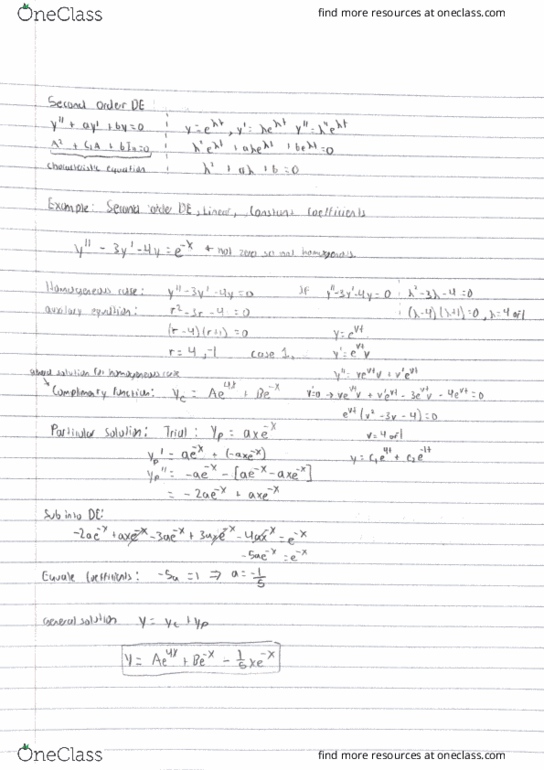 OneClass
find more resources at oneclass.com
Second order DE
y'' + ay' + by = 0
y = e^λt, y' = λe^λt y'' = λ²e^λt
λ² + aλ + b = 0
λ²e^λt + aλe^λt + be^λt = 0
characteristic equation
λ² + aλ + b = 0
Example: Second order DE, Linear, Constant Coefficients
y'' - 3y' - 4y = e^-x ← not zero so not homogeneous
Homogeneous case: y'' - 3y' - 4y = 0
If y'' - 3y' - 4y = 0 : λ² - 3λ - 4 = 0
auxiliary equation: r² - 3r - 4 = 0
(λ-4)(λ+1) = 0, λ = 4 or 1
(r - 4)(r + 1) = 0
y = e^vt
r = 4, -1 case 1.
y' = e^vt v
solution for homogeneous case
y'' = ve^vt v + v'e^vt
Complimentary function: yc = Ae^4x + Be^-x
v'=0 → ve^vt v + v'e^vt - 3e^vt v - 4e^vt = 0
e^vt (v² - 3v - 4) = 0
Particular solution: Trial: yp = axe^-x
v = 4 or 1
yp' = ae^-x + (-axe^-x)
y = c₁e^4t + c₂e^-1t
yp'' = -ae^-x - [ae^-x - axe^-x]
= -2ae^-x + axe^-x
Sub into DE:
-2ae^-x + axe^-x - 3ae^-x + 3axe^-x - 4ax^-x = e^-x
-5ae^-x = e^-x
Equate Coefficients: -5a = 1 ⇒ a = -1/5
General solution y = yc + yp
y = Ae^4x + Be^-x - 1/5 xe^-x
OneClass
find more resources at oneclass.com